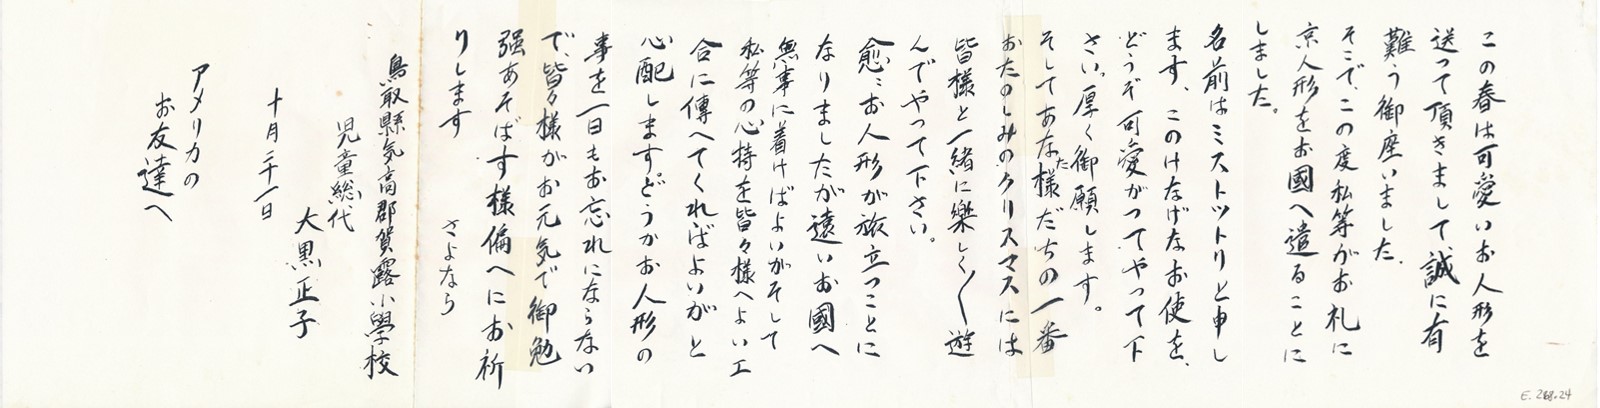 この春は可愛いお人形を
送って頂きまして誠に有
難う御座いました.
そこで、この度私等がお礼に
京人形をお國へ遣ることに
しました。
名前はミストットリと申し
ます、このけなげなお使を、
どうぞ可愛がってやって下
さい。厚く御願します。
そしてあなた様だちの一番
おたのしみのクリスマスには
皆様と一緒に樂しく〳〵遊
んでやって下さい。
愈〻お人形が旅立つことに
なりましたが遠いお國へ
無事に着けばよいがそして
私等の心持を皆々様へよい工
合に傳へてくれればよいがと
心配します。どうかお人形の
事を一日もお忘れにならない
で、皆々様がお元気で御勉
强あそばす様偏へにお祈
りします
さよなら
鳥取縣気高郡賀露小學校
児童総代
大黒正子
十月二十一日
アメリカの
お友達へ
E. 268.24